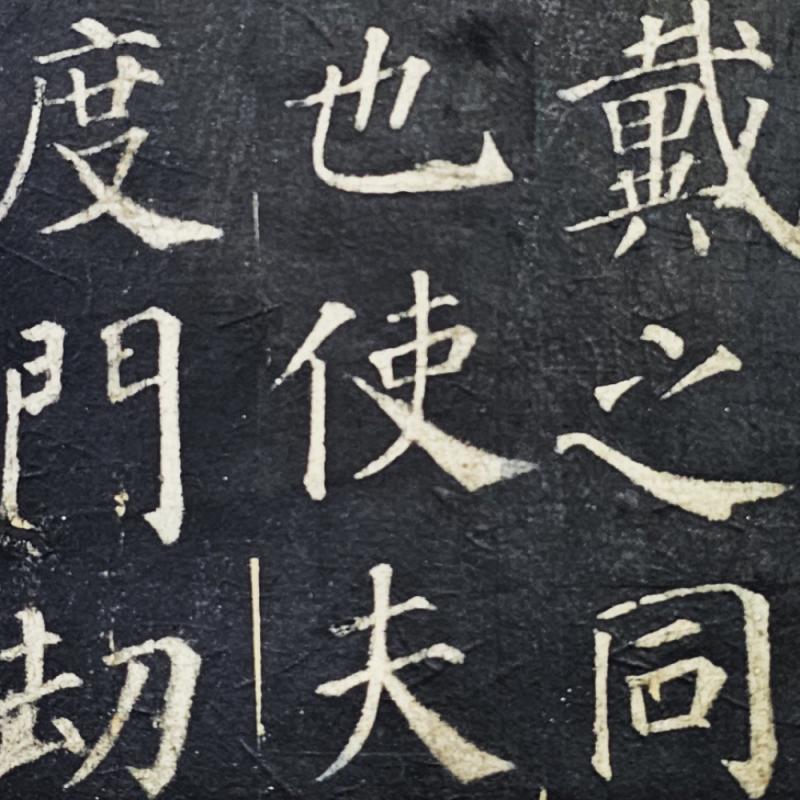 戴之同
也使夫
度門劫